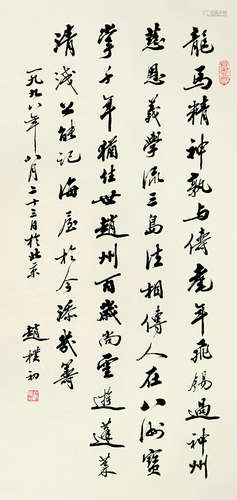 龍馬精神孰与儔耄年飛錫過神州
慈恩義學流三島法相傳人在八洲寶
掌千年猶住世趙州百歲尚雲遊蓬萊
清淺公能記海屋於今添幾籌
一九九八年八月二十三日於北京
趙樸初